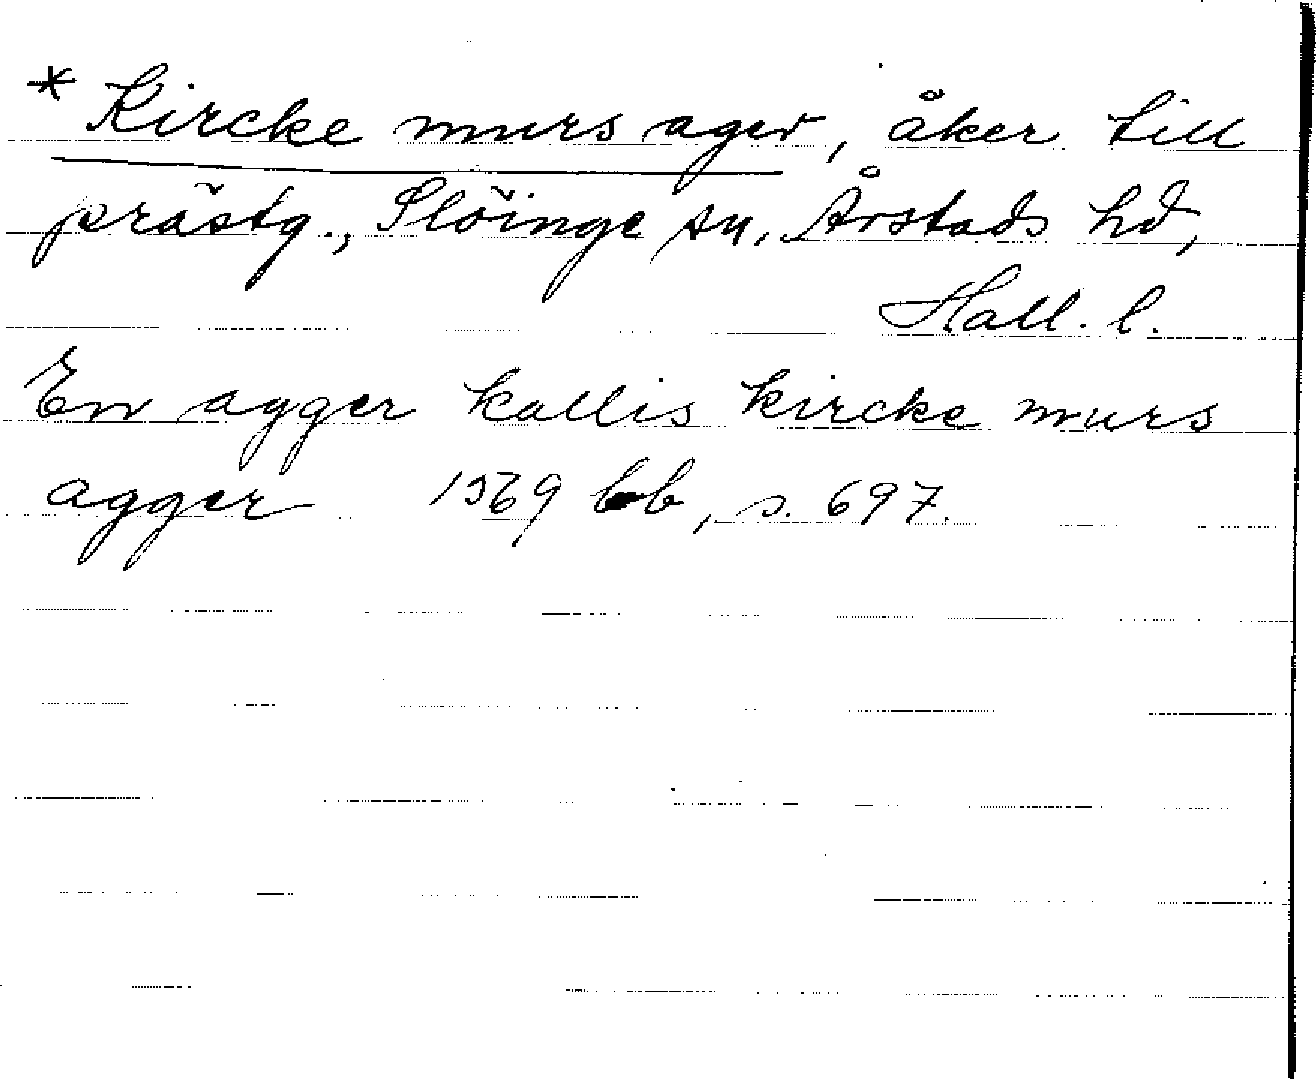 * Kircke murs ager, åker till
prästg., Slöinge sn, Årstads hd,
Hall. l.
En agger kallis kircke murs
agger 1569 bb, s. 697.